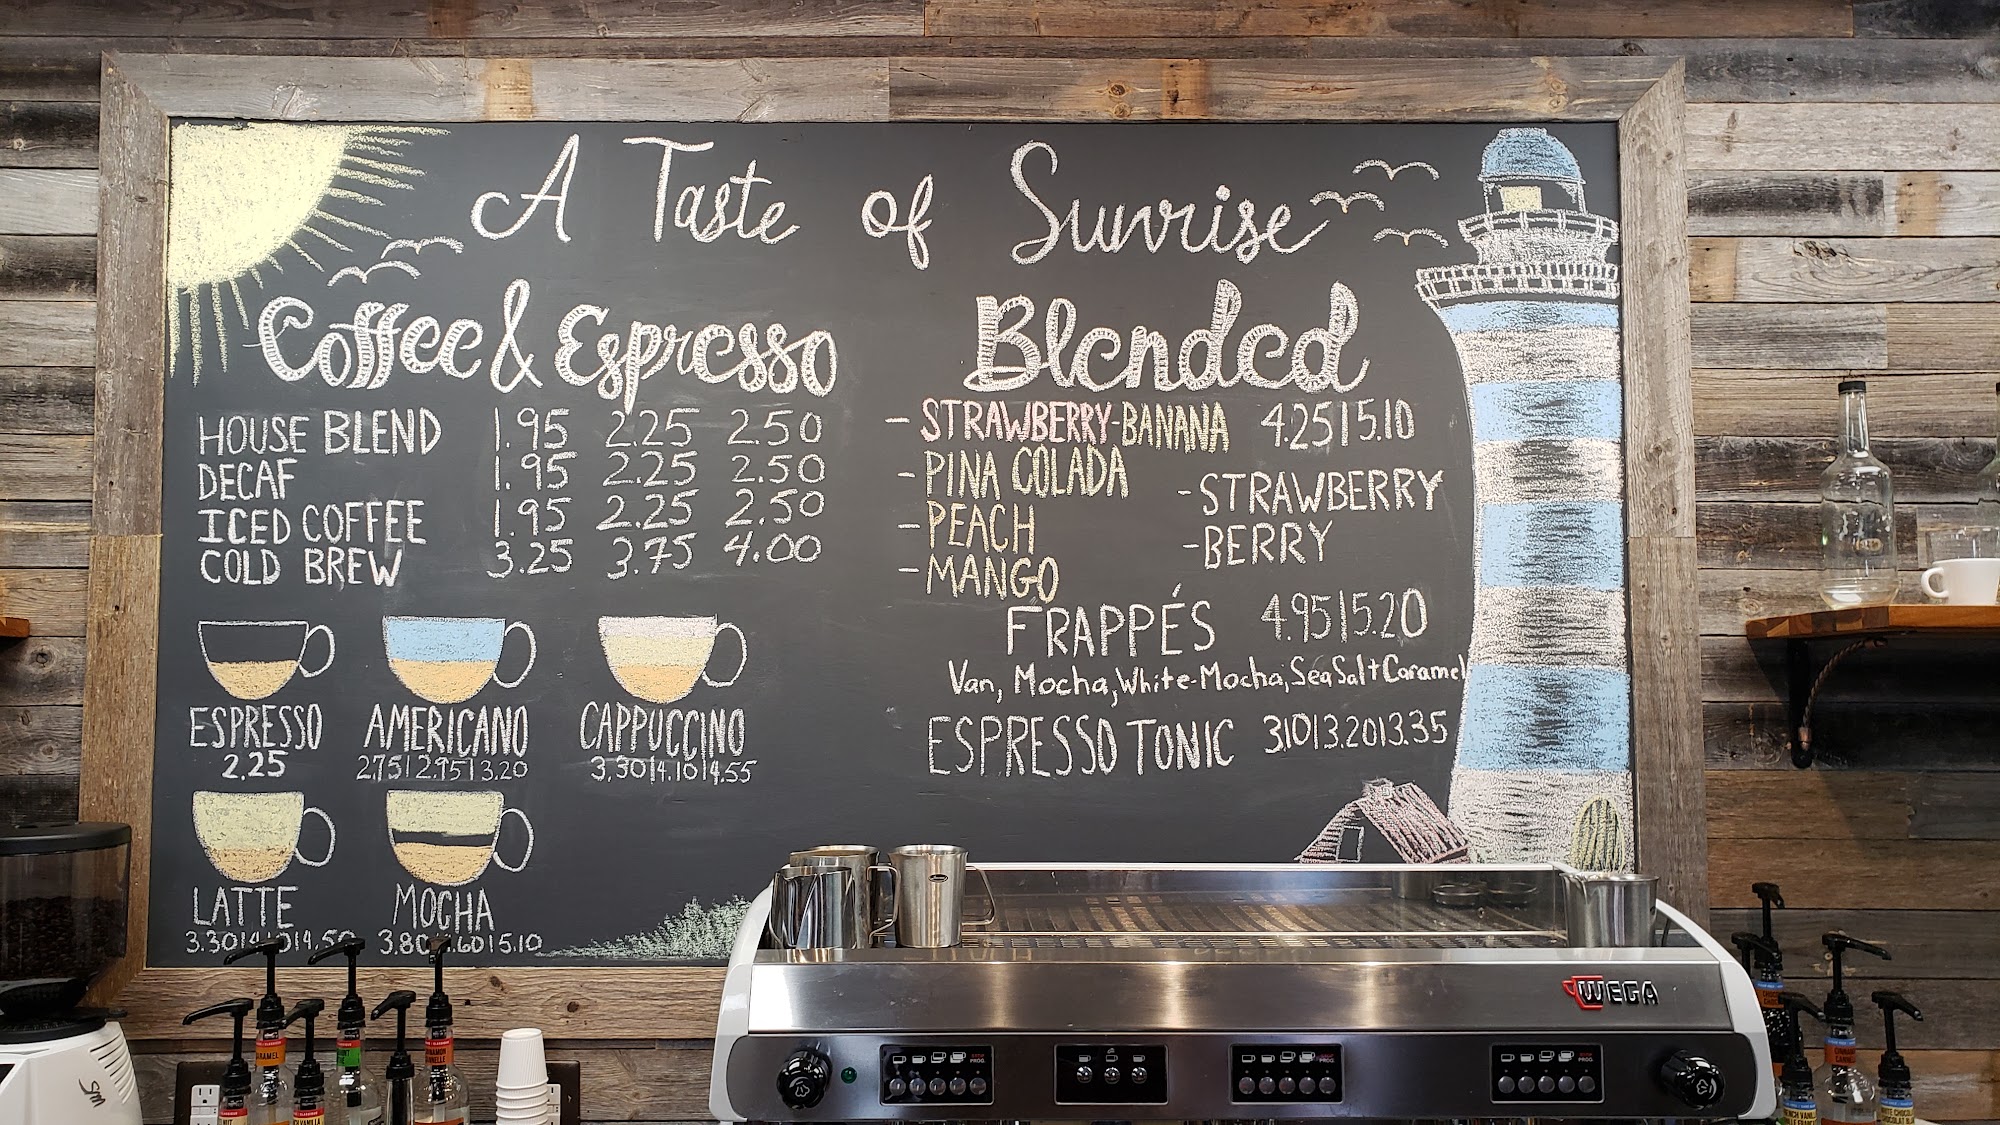 A Taste of Sunrise
Coffee & Espresso
HOUSE BLEND 1.95 2.25 2.50
DECAF 1.95 2.25 2.50
ICED COFFEE 1.95 2.25 2.50
COLD BREW 3.25 3.75 4.00
ESPRESSO
2.25
AMERICANO
2.75|2.95|3.20
CAPPUCCINO
3.30|4.10|4.55
LATTE
3.30|4.10|4.50
MOCHA
3.80 4.60|5.10
Blended
- STRAWBERRY-BANANA 4.25|5.10
- PINA COLADA
- PEACH
- MANGO
- STRAWBERRY
- BERRY
FRAPPÉS 4.95|5.20
Van, Mocha, White-Mocha, Sea Salt Caramel
ESPRESSO TONIC 3.10|3.20|3.35
WEGA
CARAMEL